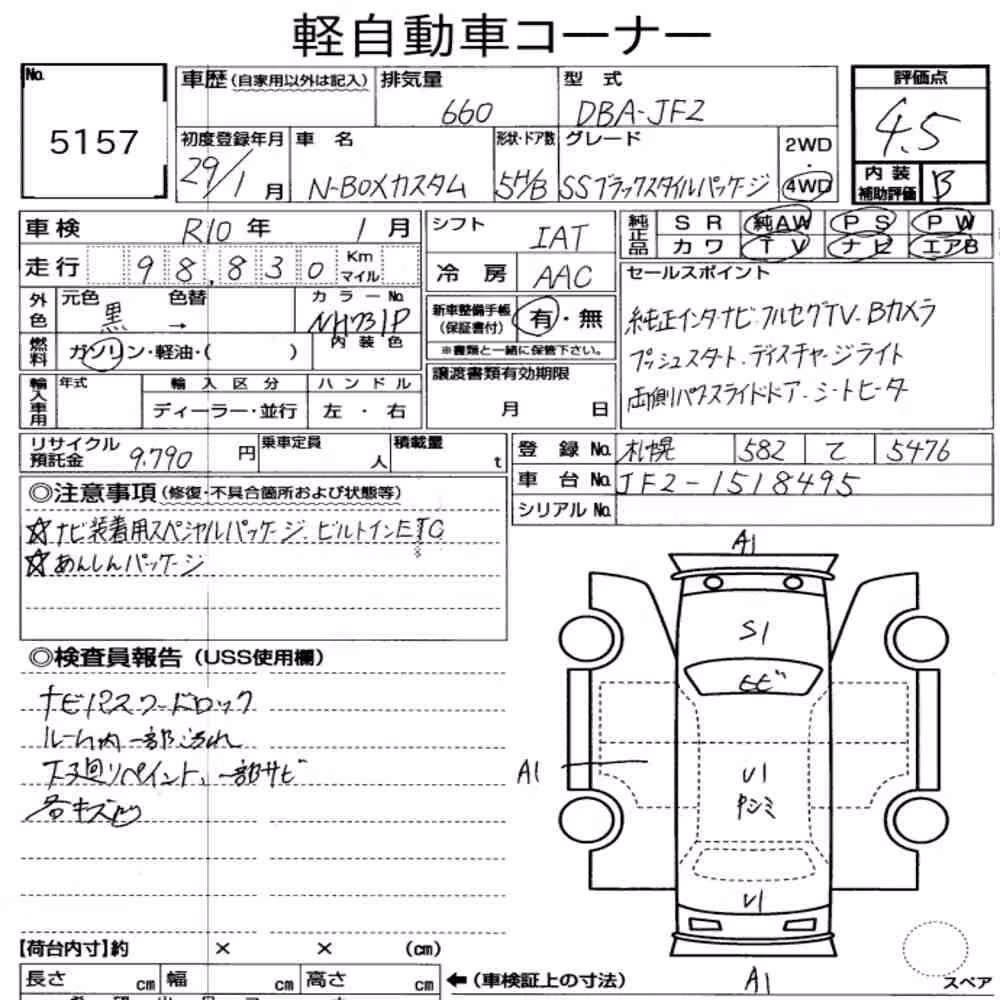 軽自動車コーナー
No. 5157
車歴(自家用以外は記入) 排気量 660 型式 DBA-JF2
初度登録年月 29/1月 車名 N-BOXカスタム 形状・ドア数 5H/B グレード SSブラックスタイルパッケージ 2WD・4WD
評価点 4.5
内装補助評価 B
車検 R10年 1月
走行 98,830 Km マイル
外色 元色 黒 色替 → カラーNo. NH731P
内装色
燃料 ガソリン・軽油・( )
輸入車用 年式 輸入区分 ディーラー・並行 ハンドル 左・右
シフト IAT
冷房 AAC
新車整備手帳(保証書付) 有・無
※書類と一緒に保管下さい。
譲渡書類有効期限 月 日
純正品 SR 純AW PS PW
カワ TV ナビ エアB
セールスポイント
純正インターナビ・フルセグTV・Bカメラ
プッシュスタート・ディスチャージライト
両側パワースライドドア・シートヒータ
リサイクル預託金 9,790円 乗車定員 人 積載量 t
登録No. 札幌 582 て 5476
車台No. JF2-1518495
シリアルNo.
◎注意事項(修復・不具合箇所および状態等)
☆ナビ装着用スペシャルパッケージ.ビルトインETC
☆あんしんパッケージ
◎検査員報告(USS使用欄)
ナビパスワードロック
ルーム内一部汚れ
下廻りペイント、一部サビ
各キズ凹
A1
S1
ヒビ
A1
U1
シミ
U1
A1
スペア
【荷台内寸】約 × × (cm)
長さ cm 幅 cm 高さ cm ←(車検証上の寸法)